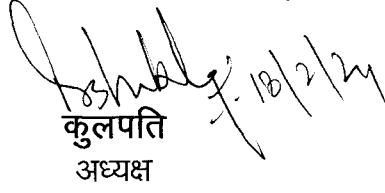 18/2/24
कुलपति
अध्यक्ष